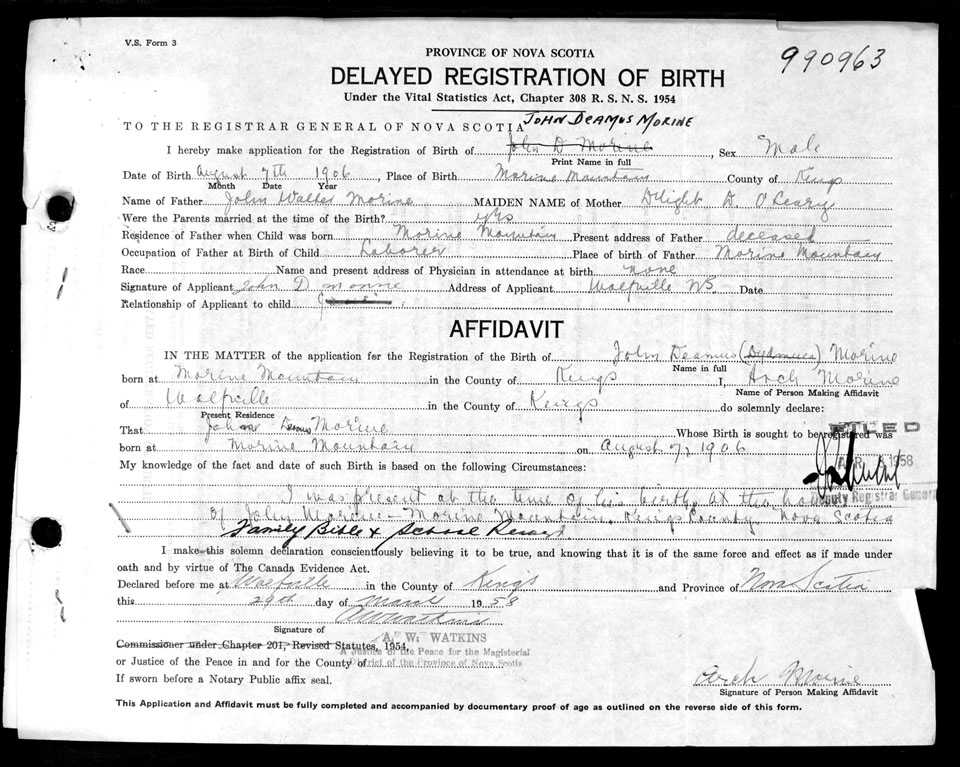 V.S. Form 3
990963
PROVINCE OF NOVA SCOTIA
DELAYED REGISTRATION OF BIRTH
Under the Vital Statistics Act, Chapter 308 R. S. N. S. 1954
JOHN DEAMUS MORINE
TO THE REGISTRAR GENERAL OF NOVA SCOTIA
I hereby make application for the Registration of Birth of John D Morine, Sex Male
Print Name in full
Date of Birth August 7th 1906, Place of Birth Morine Mountain County of Kings
Month Date Year
Name of Father John Walter Morine MAIDEN NAME of Mother Dlight D O'Leary
Were the Parents married at the time of the Birth? yes
Residence of Father when Child was born Morine Mountain Present address of Father deceased
Occupation of Father at Birth of Child Laborer Place of birth of Father Morine Mountain
Race Name and present address of Physician in attendance at birth none
Signature of Applicant John D Morine Address of Applicant Wolfville NS. Date
Relationship of Applicant to child
AFFIDAVIT
IN THE MATTER of the application for the Registration of the Birth of John Deamus (Dydmus) Morine
Name in full
born at Morine Mountain in the County of Kings I, Arch Morine
Name of Person Making Affidavit
of Wolfville in the County of Kings do solemnly declare:
Present Residence
That John Deamus Morine Whose Birth is sought to be registered was
FILED
born at Morine Mountain on August 7, 1906
APR 1958
My knowledge of the fact and date of such Birth is based on the following Circumstances:
Deputy Registrar General
I was present at the time of his birth, at the home
of John Morine - Morine Mountain, Kings County Nova Scotia
Family Bible & School Record
I make this solemn declaration conscientiously believing it to be true, and knowing that it is of the same force and effect as if made under
oath and by virtue of The Canada Evidence Act.
Declared before me at Wolfville in the County of Kings and Province of Nova Scotia
this 29th day of March 1958
AW Watkins
Signature of
A. W. WATKINS
Commissioner under Chapter 201, Revised Statutes, 1954,
A Justice of the Peace for the Magisterial
or Justice of the Peace in and for the County of
District of the Province of Nova Scotia
If sworn before a Notary Public affix seal.
Arch Morine
Signature of Person Making Affidavit
This Application and Affidavit must be fully completed and accompanied by documentary proof of age as outlined on the reverse side of this form.